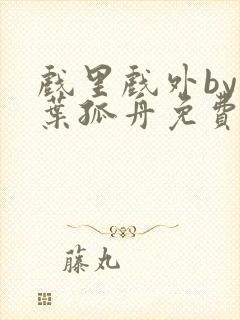 戲里戲外by
葉孤舟免費
藤丸